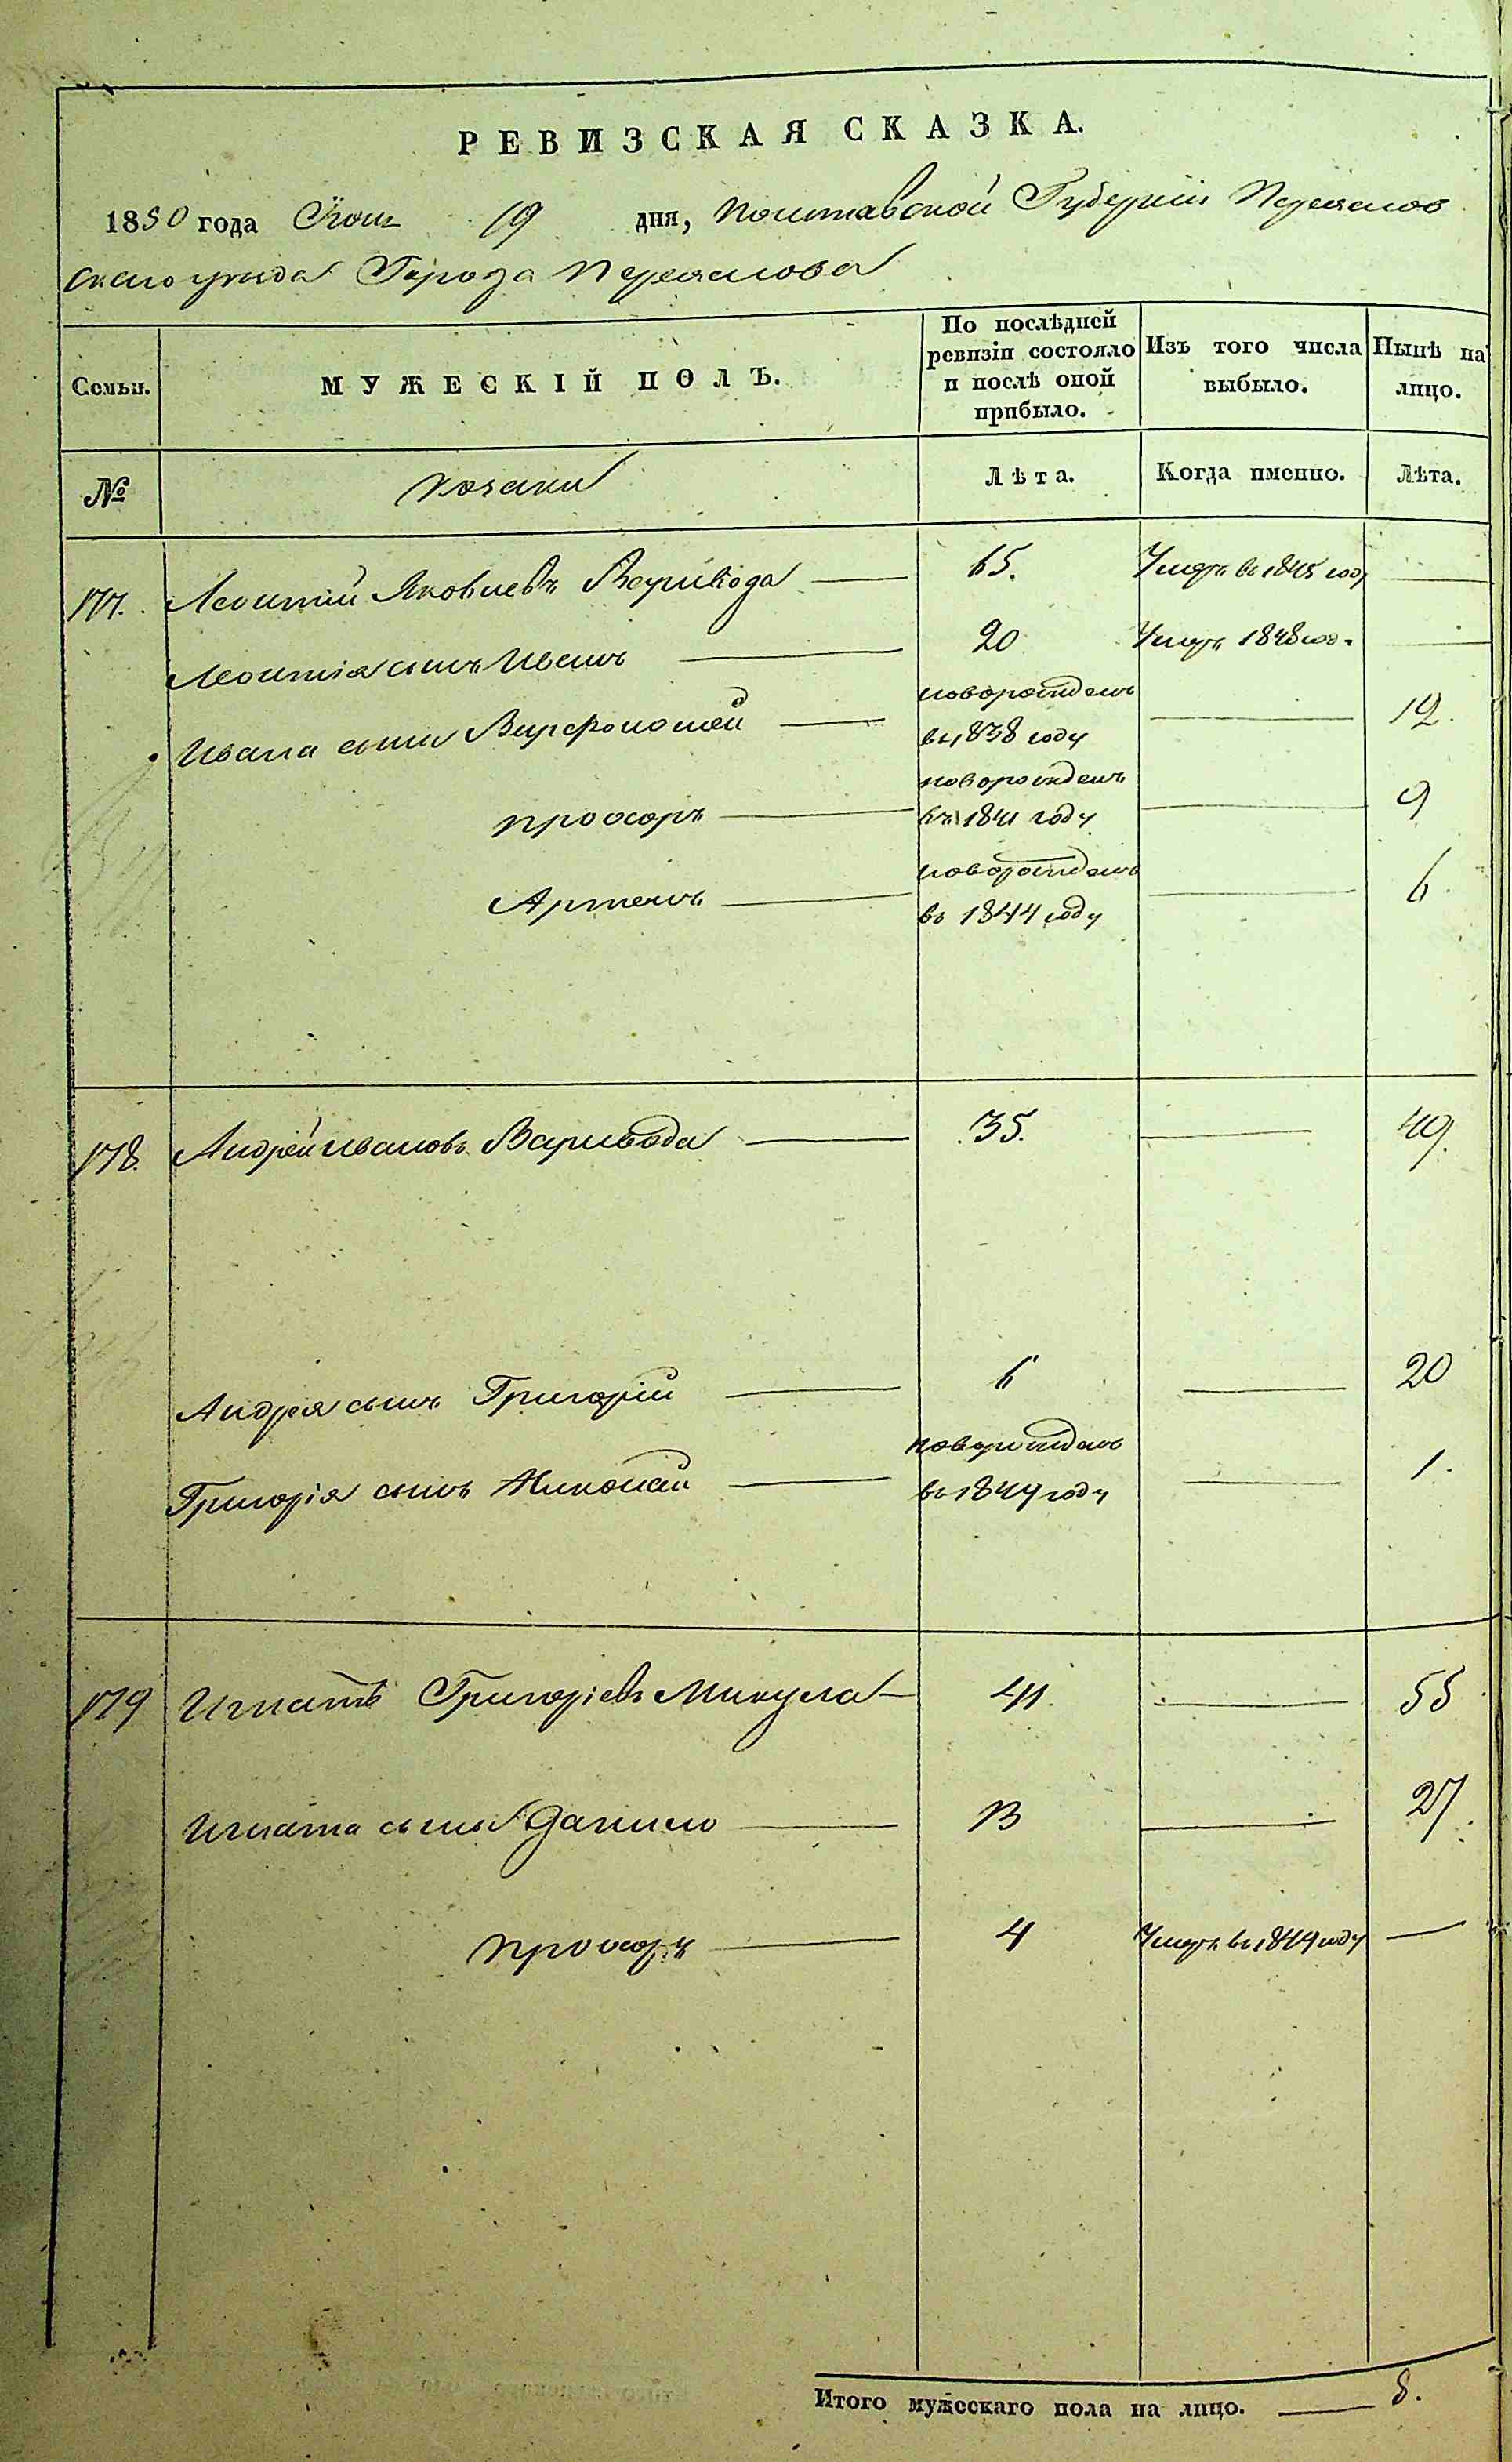 РЕВИЗСКАЯ СКАЗКА.
1850 года Июня 19 дня, Полтавской Губерніи Переяслов
скаго уезда Города Переяслова
Семьи. МУЖЕСКІЙ ПОЛЪ. По послѣдней ревизіи состояло и послѣ оной прибыло. Изъ того числа выбыло. Нынѣ на лицо.
№ Козаки Лѣта. Когда именно. Лѣта.
177. Леонтий Яковлевъ Варивода 65. Умеръ въ 1845 году
Леонтія сынъ Иванъ 20 Умеръ 1848 год.
Ивана сыны Варфоломей новорожденъ въ 1838 году 12.
Прохоръ новорожденъ въ 1841 году 9
Артемъ новорожденъ въ 1844 году 6.
178. Андрей Ивановъ Варивода 35. 49.
Андрея сынъ Григорій 6 20
Григорія сынъ Николай новорожденъ въ 1849 году 1.
179 Игнатъ Григоріевъ Микула 41. 55
Игната сыны Данило 13 27.
Прохоръ 4 Умеръ въ 1849 году
Итого мужескаго пола на лицо. 8.